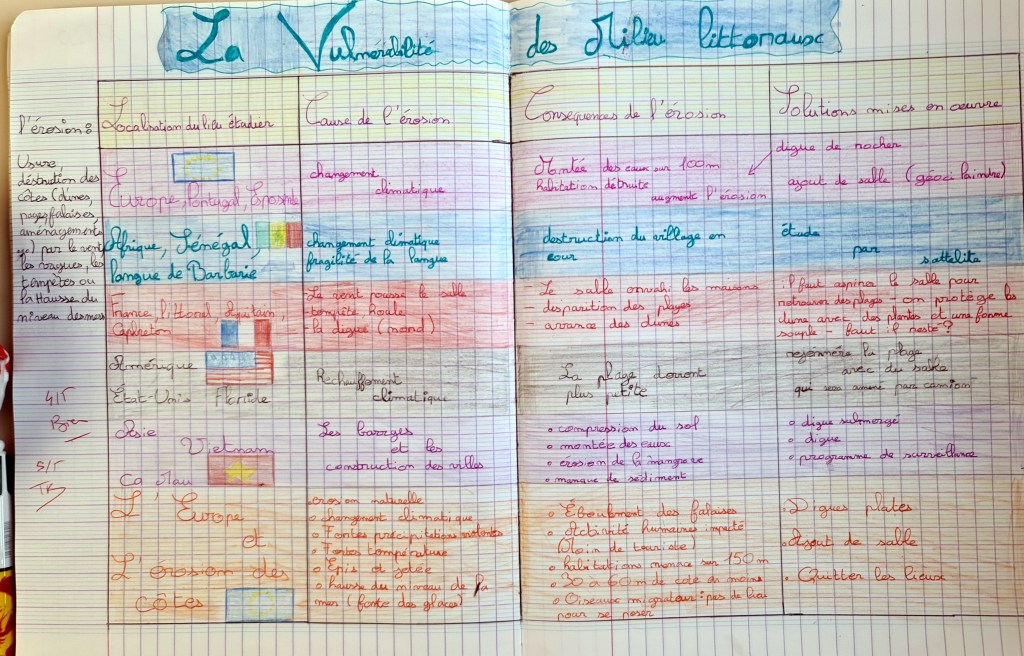 La Vulnerabilité des Milieu littoraux
l'érosion :
Usure,
déstrution des
côtes (dunes,
falaises,
aménagements
) par le vent
les vagues, les
tempêtes ou
la Hausse du
niveau des mers
4/5
Bien
5/5
TB
Localisation du lieu étudier
Cause de l'érosion
Conséquences de l'érosion
Solutions mises en oeuvre
Europe, Portugal, Espagne
changement
climatique
Montée des eaux sur 100m
habitation détruite
augmente l'érosion
digue de rocher
ajout de sable
Afrique, Sénégal,
langue de Barbarie
changement climatique
fragilité de la langue
destruction du village en
cour
étude
par sattelite
France, littoral, Aquitain
Capbreton
- Le vent pousse le sable
- tempête houle
- la digue (nord)
Le sable envahi les maisons
- disparition des plages
- avancé des dunes
: il faut aspirer le sable pour
retrouver des plages - on protège les
dune avec des plantes et une forme
souple - faut-il resté ?
Amérique
État-Unis Floride
Rechauffement
climatique
La plage devront
plus petite
la plage
avec du sable
qui sera amené par camion
Asie
Vietnam
Ca Mau
Les barrages
et les
construction des villes
• compression du sol
• montée des eaux
• érosion de la mangrove
• manque de sédiment
• digue submergé
• digue
• programme de surveillance
L'Europe
et
L'érosion des
côtes
erosion naturelle
• changement climatique
• Fortes précipitations violentes
• Fortes température
• Epis et jetée
• hausse du niveau de la
mer (fonte des glaces)
• Éboulement des falaises
• Activité humaines impacté
(Moin de touriste)
• habitations menacé sur 150m
• 30 à 60m de coté en moins
• Oiseaux migrateur : pas de lieu
pour se poser
• Digues plates
• Ajout de sable
• Quitter les lieux